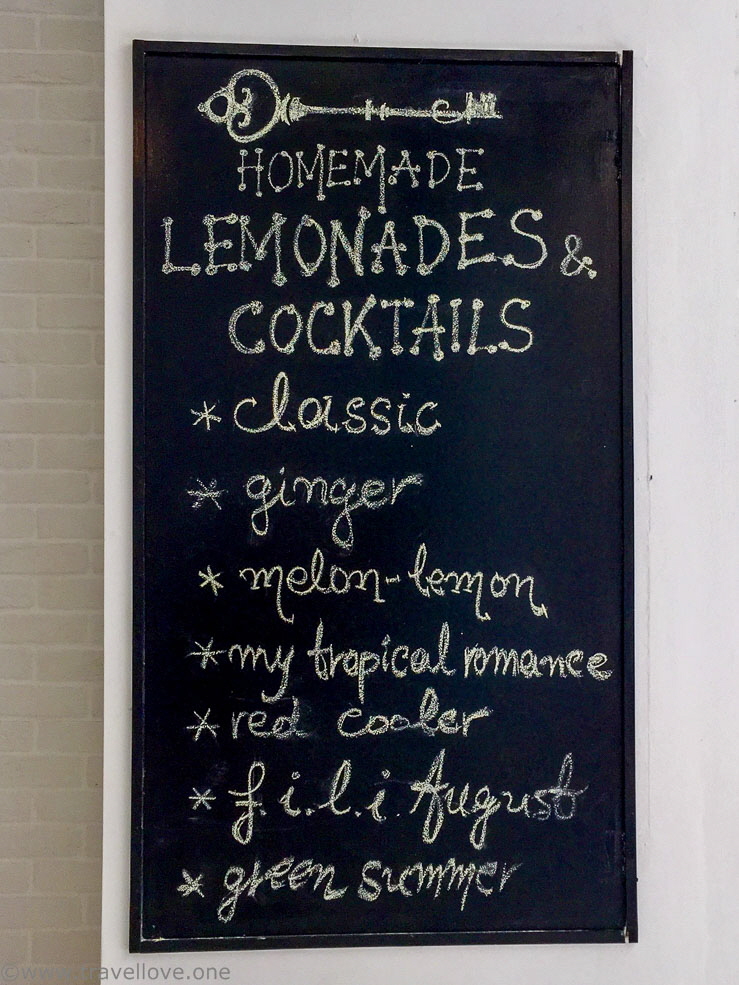 HOMEMADE
LEMONADES &
COCKTAILS
* classic
* ginger
* melon-lemon
* my tropical romance
* red cooler
* f.i.l.i. August
* green summer
©www.travellove.one